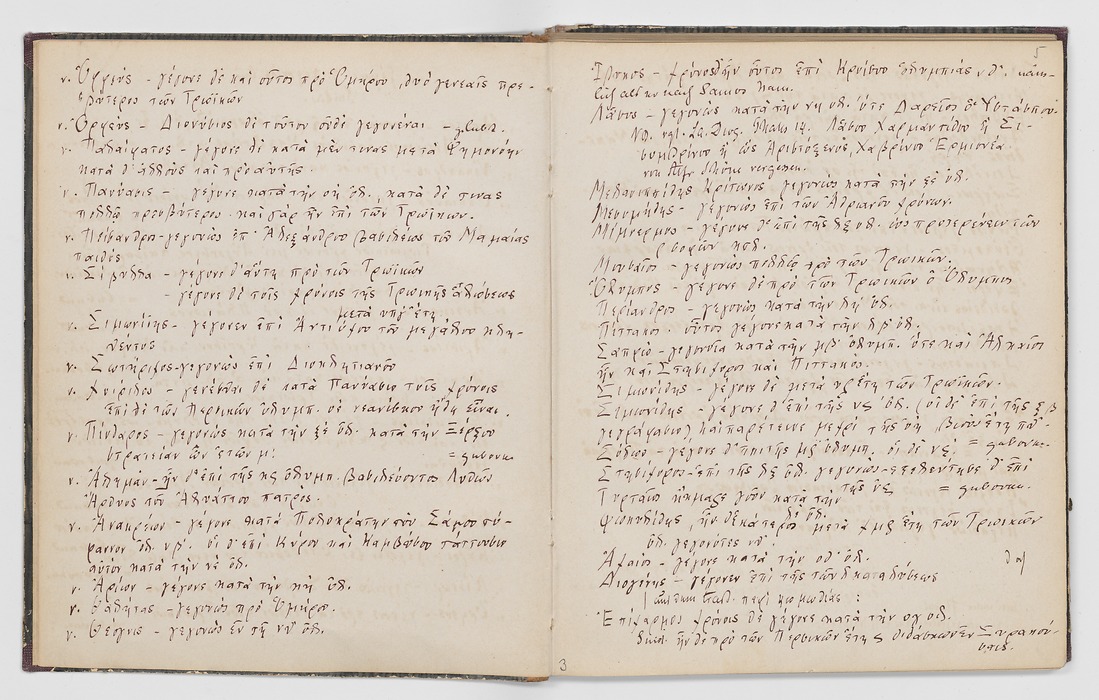 ν. Ὀρφεύς - γέγονε δὲ καὶ οὗτος πρὸ Ὁμήρου, δυὸ γενεαῖς πρε-
σβύτερος τῶν Τρωϊκῶν
ν. Ὀρφεύς - Διονύσιος δὲ τοῦτον οὐδὲ γεγονέναι
ν. Παλαίφατος - γέγονε δὲ κατὰ μέν τινας μετὰ Φημονόην
κατὰ δ' ἄλλους καὶ πρὸ αὐτῆς.
ν. Πανύασις - γέγονε κατὰ τὴν οη ὀλ., κατὰ δέ τινας
πολλῷ πρεσβύτερος. καὶ γὰρ ἦν ἐπὶ τῶν Περσικῶν.
ν. Πείσανδρος - γεγονὼς ἐπ' Ἀλεξάνδρου βασιλέως τοῦ Μαμαίας
παιδός
ν. Σίβυλλα - γέγονε δ' αὕτη πρὸ τῶν Τρωϊκῶν
- γέγονε δὲ τοῖς χρόνοις τῆς Τρωικῆς ἁλώσεως
μετὰ υπγ' ἔτη
ν. Σιμωνίδης - γέγονεν ἐπὶ Ἀντιόχου τοῦ μεγάλου κλη-
θέντος
ν. Σωτήριχος - γεγονὼς ἐπὶ Διοκλητιανοῦ
ν. Χοιρίλος - γενέσθαι δὲ κατὰ Πανύασιν τοῖς χρόνοις
ἐπὶ δὲ τῶν Περσικῶν ὀλυμπ. οε νεανίσκον ἤδη εἶναι.
ν. Πίνδαρος - γεγονὼς κατὰ τὴν ξε ὀλ. κατὰ τὴν Ξέρξου
στρατείαν ὢν ἐτῶν μ'.
ν. Ἀλκμάν - ἦν δ' ἐπὶ τῆς κζ ὀλυμπ. βασιλεύοντος Λυδῶν
Ἄρδυος τοῦ Ἀλυάττου πατρός.
ν. Ἀνακρέων - γέγονε κατὰ Πολυκράτην τὸν Σάμου τύ-
ραννον ὀλ. νβ'. οἱ δ' ἐπὶ Κύρου καὶ Καμβύσου τάττουσιν
αὐτὸν κατὰ τὴν νε ὀλ.
ν. Ἀρίων - γέγονε κατὰ τὴν λη ὀλ.
ν. Θαλήτας - γεγονὼς πρὸ Ὁμήρου.
ν. Θέογνις - γεγονὼς ἐν τῇ νθ' ὀλ.
3
5
Ἴβυκος - χρόνος δ' ἦν οὗτος ἐπὶ Κροίσου ὀλυμπιὰς νδ'.
nach Samos kam.
Λᾶσος - γεγονὼς κατὰ τὴν νη ὀλ. ὅτε Δαρεῖος ὁ Ὑστάσπου.
Λᾶσος Χαρμαντίδου ἢ Σι-
συμβρίνου ἢ ὡς Ἀριστόξενος, Χαβρίνου Ἑρμιονέα.
Μελανιππίδης Κρίτωνος. γεγονὼς κατὰ τὴν ξε ὀλ.
Μεσομήδης - γεγονὼς ἐπὶ τῶν Ἀδριανοῦ χρόνων.
Μίμνερμος - γέγονε δ' ἐπὶ τῆς λζ ὀλ. ὡς προτερεύειν τῶν
ζ σοφῶν
Μουσαῖος - γεγονὼς πολλῷ πρὸ τῶν Τρωικῶν.
Ὄλυμπος - γέγονε δὲ πρὸ τῶν Τρωικῶν ὁ Ὄλυμπος
Περίανδρος - γεγονὼς κατὰ τὴν λη' ὀλ.
Πιττακός - οὗτος γέγονε κατὰ τὴν λβ' ὀλ.
Σαπφώ - γεγονυῖα κατὰ τὴν μβ' ὀλυμπ. ὅτε καὶ Ἀλκαῖος
ἦν καὶ Στησίχορος καὶ Πιττακός.
Σιμωνίδης - γέγονε δὲ μετὰ υϟ ἔτη τῶν Τρωϊκῶν.
Σιμωνίδης - γέγονε δ' ἐπὶ τῆς νς ὀλ. (οἱ δὲ ἐπὶ τῆς ξβ
γεγράφασιν), καὶ παρέτεινε μέχρι τῆς οη, βιοὺς ἔτη πθ'.
Σόλων - γέγονε δ' ἐπὶ τῆς μζ ὀλυμπ. οἱ δὲ νς.
Στησίχορος - ἐπὶ τῆς λζ ὀλ. γεγονώς - ἐξεδήμησε δ' ἐπὶ
τῆς νς
Τυρταῖος ἤκμαζε γοῦν κατὰ τὴν λε ὀλ.
Φωκυλίδης, ἦν δὲ ἑκάτερος μετὰ χμζ ἔτη τῶν Τρωϊκῶν
ὀλ. γεγονότες νθ'.
Ἀχαιός - γέγονε κατὰ τὴν οδ' ὀλ.
Διογένης - γέγονεν ἐπὶ τῆς τῶν λ καταλύσεως
περὶ κωμῳδίας :
Ἐπίχαρμος χρόνοις δὲ γέγονε κατὰ τὴν ογ ὀλ.
Suid. ἦν δὲ πρὸ τῶν Περσικῶν ἔτη ς διδάσκων ἐν Συρακού-
σαις.